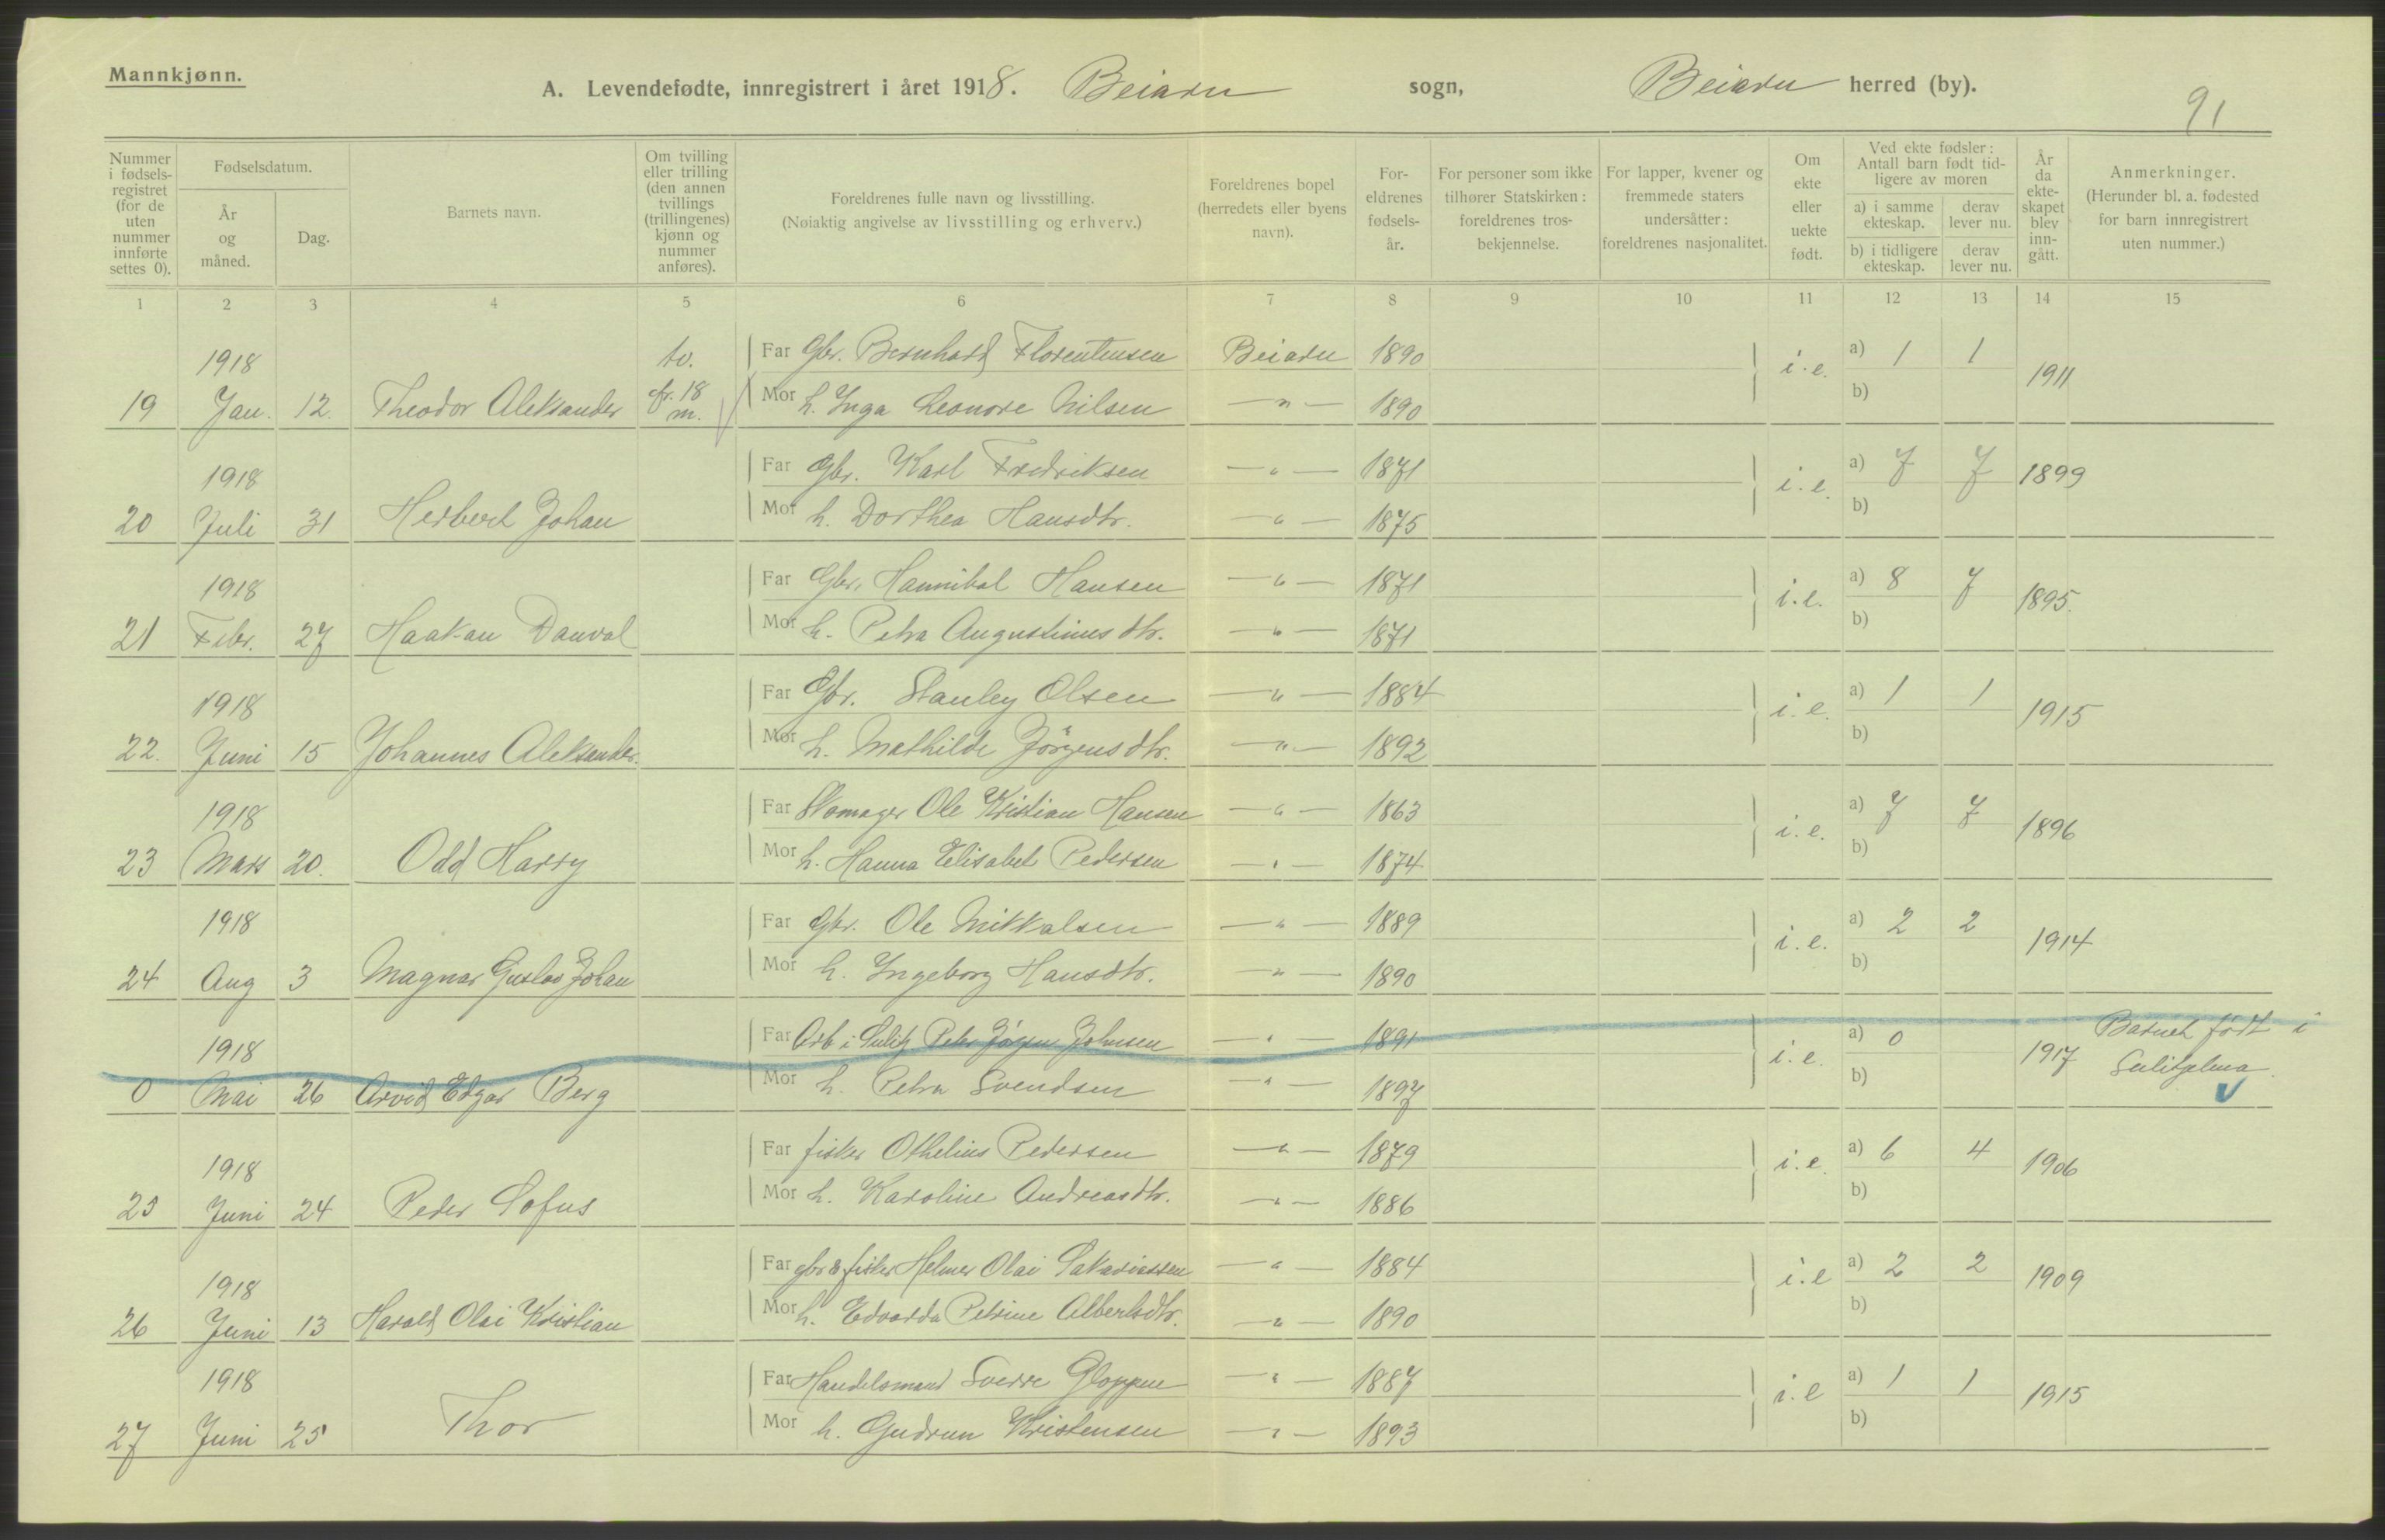 Mannkjønn.
A. Levendefødte, innregistrert i året 1918. Beiarn sogn, Beiarn herred (by).
91
Nummer i fødsels-registret (for de uten nummer innførte settes 0).
Fødselsdatum.
År og måned.
Dag.
Barnets navn.
Om tvilling eller trilling (den annen tvillings (trillingenes) kjønn og nummer anføres).
Foreldrenes fulle navn og livsstilling.
(Nøiaktig angivelse av livsstilling og erhverv.)
Foreldrenes bopel (herredets eller byens navn).
For-eldrenes fødsels-år.
For personer som ikke tilhører Statskirken: foreldrenes tros-bekjennelse.
For lapper, kvener og fremmede staters undersåtter: foreldrenes nasjonalitet.
Om ekte eller uekte født.
Ved ekte fødsler: Antall barn født tid-ligere av moren
a) i samme ekteskap.
derav lever nu.
b) i tidligere ekteskap.
derav lever nu.
År da ekte-skapet blev inn-gått.
Anmerkninger.
(Herunder bl. a. fødested for barn innregistrert uten nummer.)
1 2 3 4 5 6 7 8 9 10 11 12 13 14 15
1918 tv. Far Gbr. Bernhard Florentinsen Beiarn 1890 i.e. a) 1 1 1911
19 Jan. 12. Theodor Aleksander cfr. 18 m. Mor h. Inga Leonore Nilsen —"— 1890 b)
1918 Far Gbr. Karl Fredriksen —"— 1871 i.e. a) 7 7 1899
20 Juli 31 Herbert Johan Mor h. Dorthea Hansdtr. —"— 1875 b)
1918 Far Gbr. Hannibal Hansen —"— 1871 i.e. a) 8 7 1895.
21 Febr. 27 Haakan Danval Mor h. Petra Augustinusdtr. —"— 1871 b)
1918 Far Gbr. Stanley Olsen —"— 1884 i.e. a) 1 1 1915
22. Juni 15 Johannes Aleksander. Mor h. Mathilde Jörgensdtr. —"— 1892 b)
1918 Far Skomager Ole Kristian Hansen —"— 1863 i.e. a) 7 7 1896
23 Mars 20. Odd Harry Mor h. Hanna Elisabet Pedersen —"— 1874 b)
1918 Far Gbr. Ole Mikkalsen —"— 1889 i.e. a) 2 2 1914
24 Aug 3 Magnar Gustav Johan Mor h. Ingeborg Hansdtr. —"— 1890 b)
1918 Far Arb i Sulitj Peter Jörgen Johnsen —"— 1891 i.e. a) 0 1917 Barnet født i
0 Mai 26 Arvid Edgar Berg Mor h. Petra Svendsen —"— 1897 b) Sulitjelma.
1918 Far fisker Othelius Pedersen —"— 1879 i.e. a) 6 4 1906
25 Juni 24 Peder Sofus Mor h. Karoline Andreasdtr. —"— 1886 b)
1918 Far gbr & fisker Helmer Olai Sakariassen —"— 1884 i.e a) 2 2 1909
26 Juni 13 Harald Olai Kristian Mor h. Edvarda Petrine Albertsdtr. —"— 1890 b)
1918 Far Handelsmand Sverre Gloppen —"— 1887 i.e a) 1 1 1915
27 Juni 25 Thor Mor h. Gudrun Kristensen —"— 1893 b)